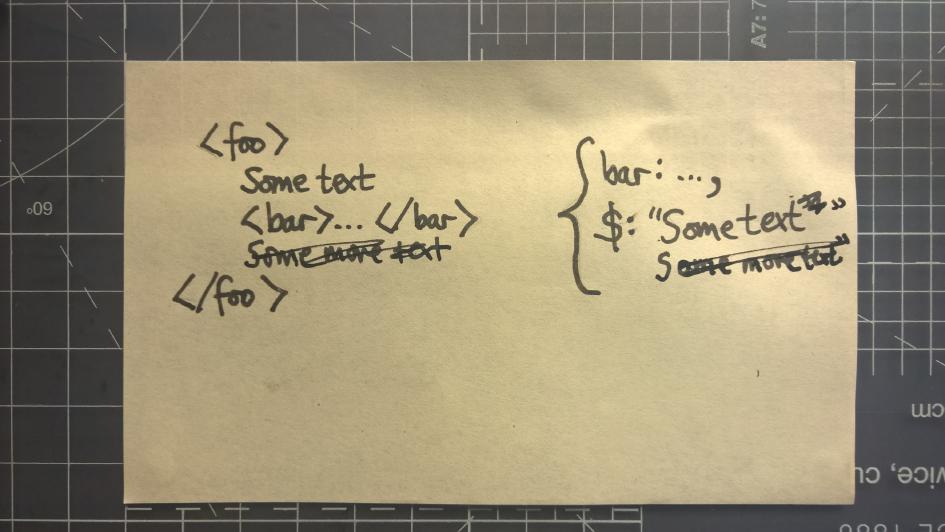 <foo>
Some text
<bar>... </bar>
Some more text
</foo>
{ bar: ...,
$: "Some text"
Some more text"
A7:7
60°
cm